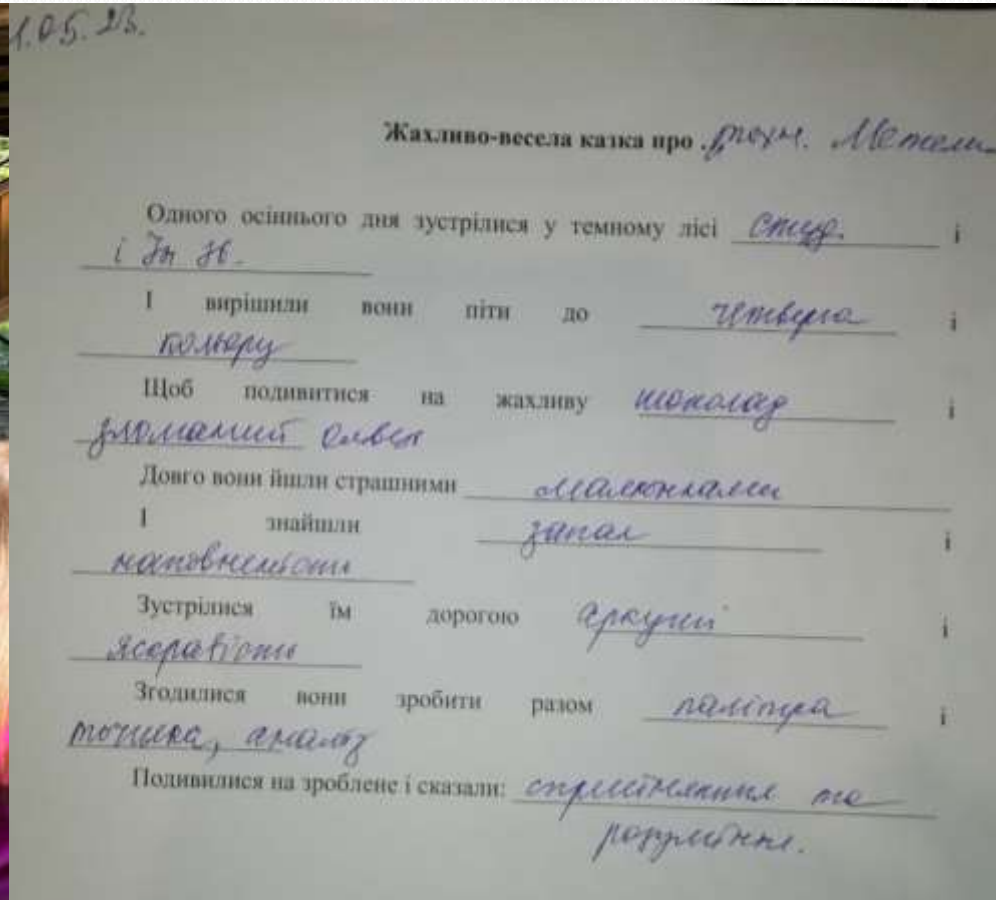 1.05.23.
Жахливо-весела казка про техн. Метели
Одного осіннього дня зустрілися у темному лісі студ. і
і Ін
І вирішили вони піти до четверга і
кольору
Щоб подивитися на жахливу шоколад і
зломаний олвец
Довго вони йшли страшними малюнками
І знайшли запал і
наповненість
Зустрілися їм дорогою аркуші і
яскравість
Згодилися вони зробити разом палітра і
точила, аналіз
Подивилися на зроблене і сказали: сприйняття та
розуміння.